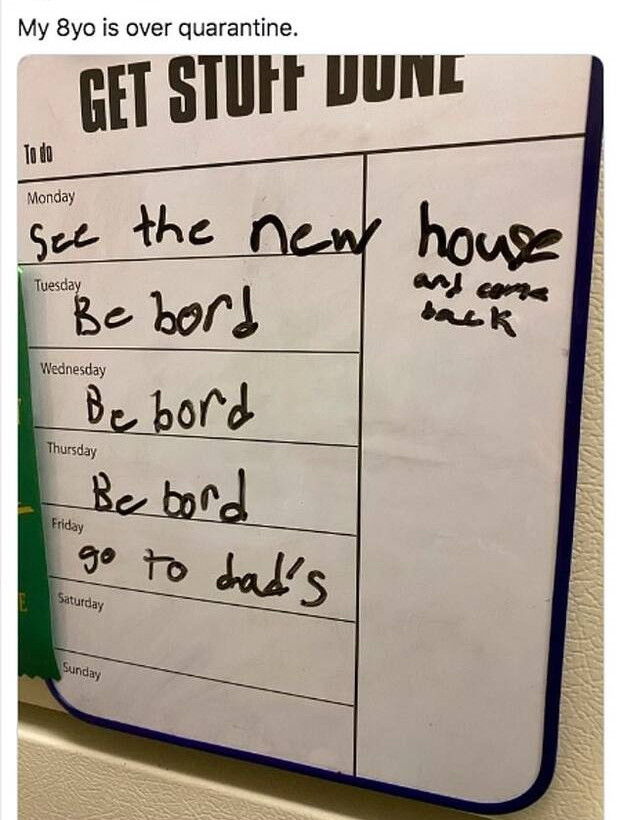 My 8yo is over quarantine.
GET STUFF DONE
To do
Monday
See the new house
and come
back
Tuesday
Be bord
Wednesday
Be bord
Thursday
Be bord
Friday
go to dad's
Saturday
Sunday